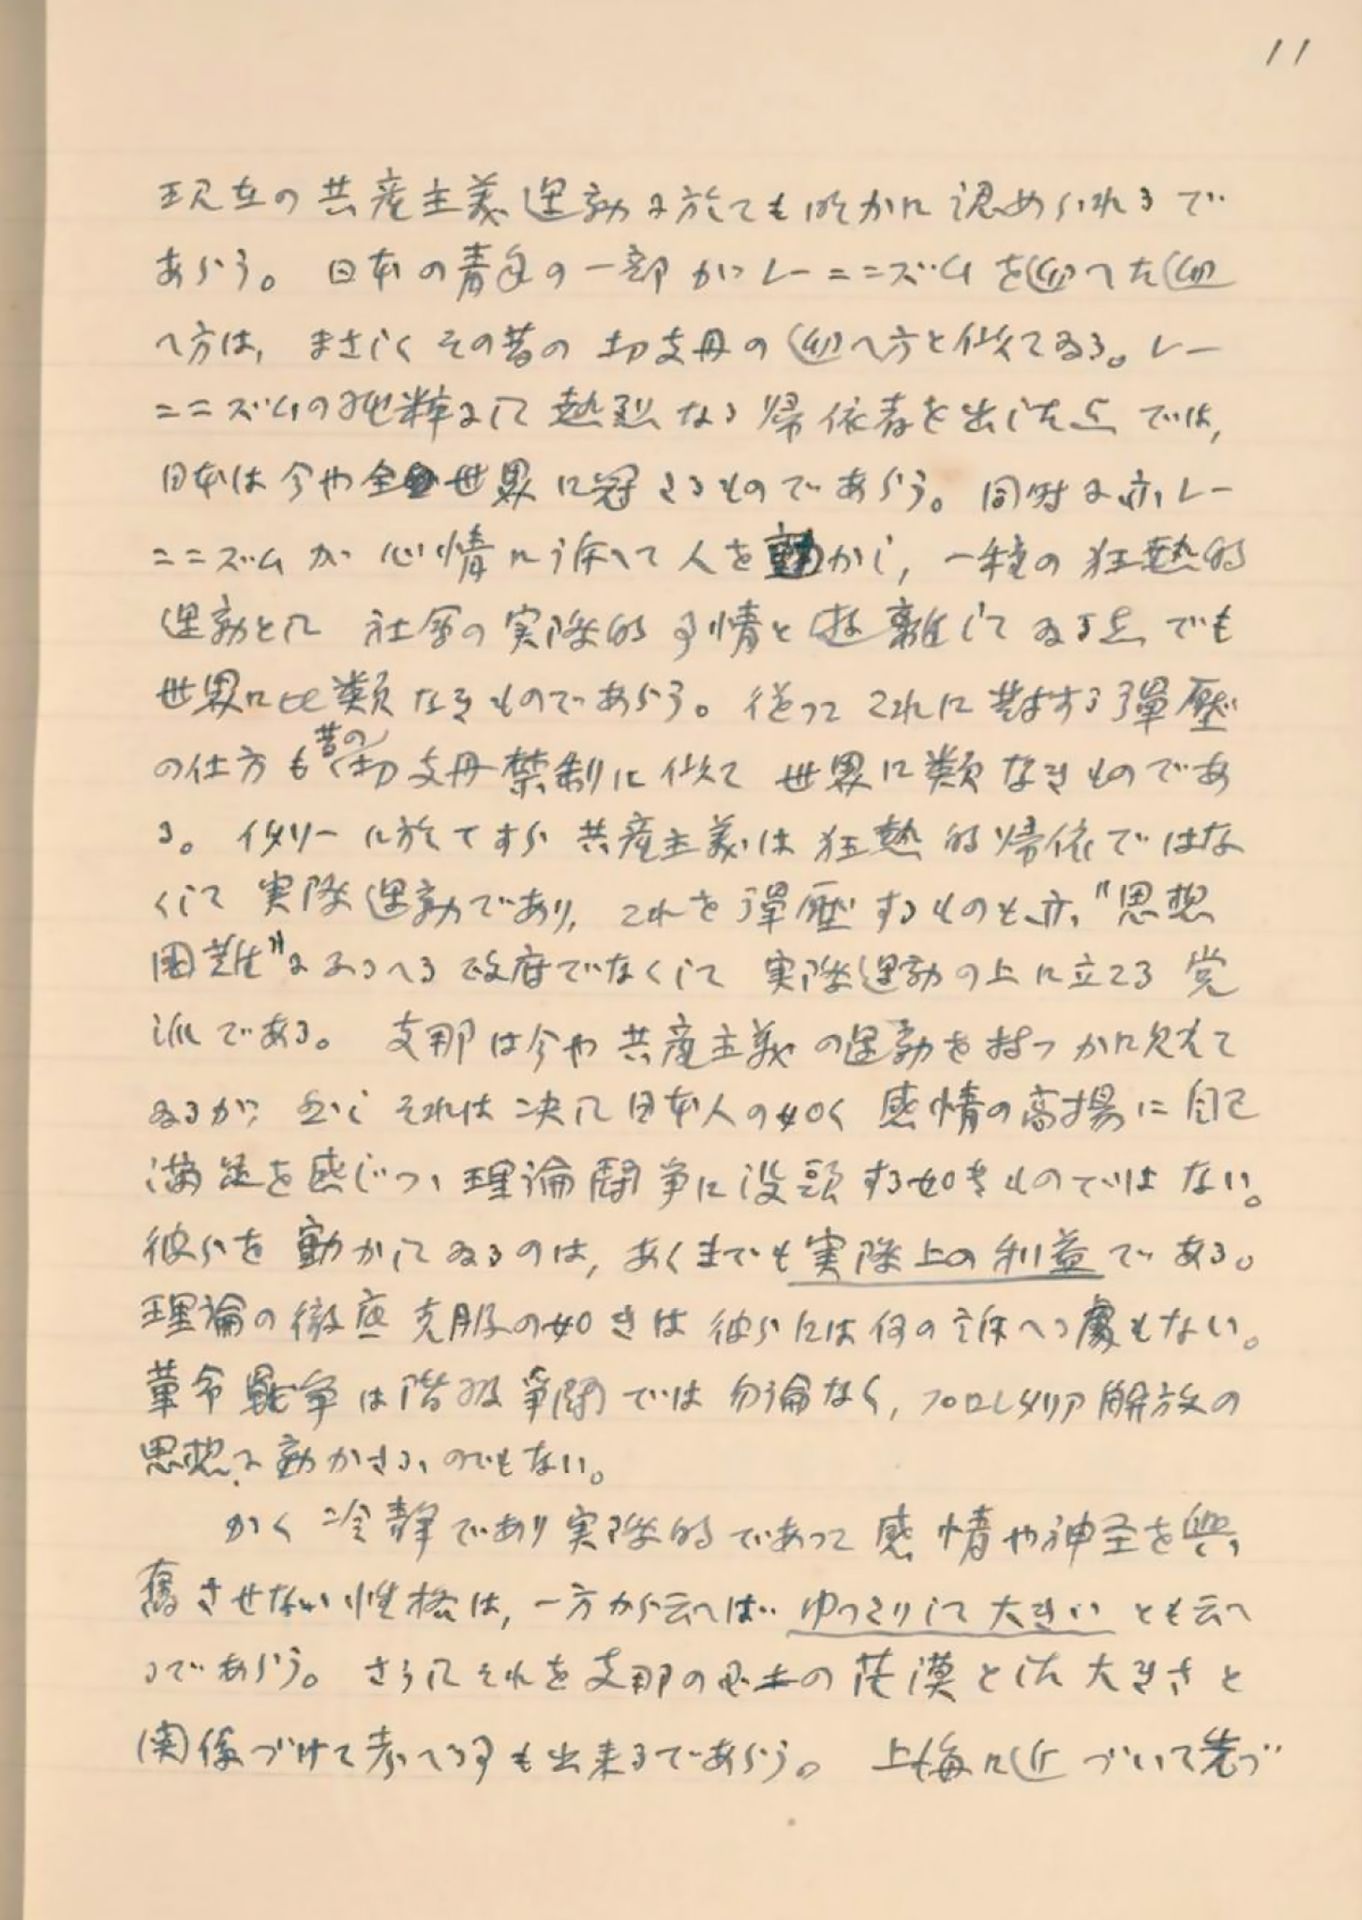 11
現在の共産主義運動に於ても明かに認められるで
あらう。日本の青年の一部がレーニニズムを迎へた迎
へ方は，まさしくその昔の切支丹の迎へ方と似てゐる。レー
ニニズムの純粋にして熱烈なる帰依者を出した点では，
日本は今や全世界に冠たるものであらう。同時に亦レー
ニニズムが心情に訴へて人を動かし，一種の狂熱的
運動として社会の実際的事情と遊離してゐる点でも
世界に比類なきものであらう。従つてこれに対する弾壓
の仕方も昔の切支丹禁制に似て世界に類なきものであ
る。イタリーに於てすら共産主義は狂熱的帰依ではな
くして実際運動であり，これを弾壓するものも亦，"思想
困難"にうろたへる政府でなくして実際運動の上に立てる党
派である。支那は今や共産主義の運動を持つかに見えて
ゐるが，併しそれは決して日本人の如く感情の高揚に自己
満足を感じつゝ理論闘争に没頭する如きものではない。
彼らを動かしてゐるのは，あくまでも実際上の利益である。
理論の徹底克服の如きは彼らには何の訴へる處もない。
革命戦争は階級争闘では勿論なく，プロレタリア解放の
思想に動かさるゝのでもない。
かく冷静であり実際的であつて感情や神経を興
奮させない性格は，一方から云へばゆつくりして大きいとも云へ
るであらう。さうしてそれを支那の国土の茫漠とした大きさと
関係づけて考へる事も出来るであらう。上海に近づいて先づ